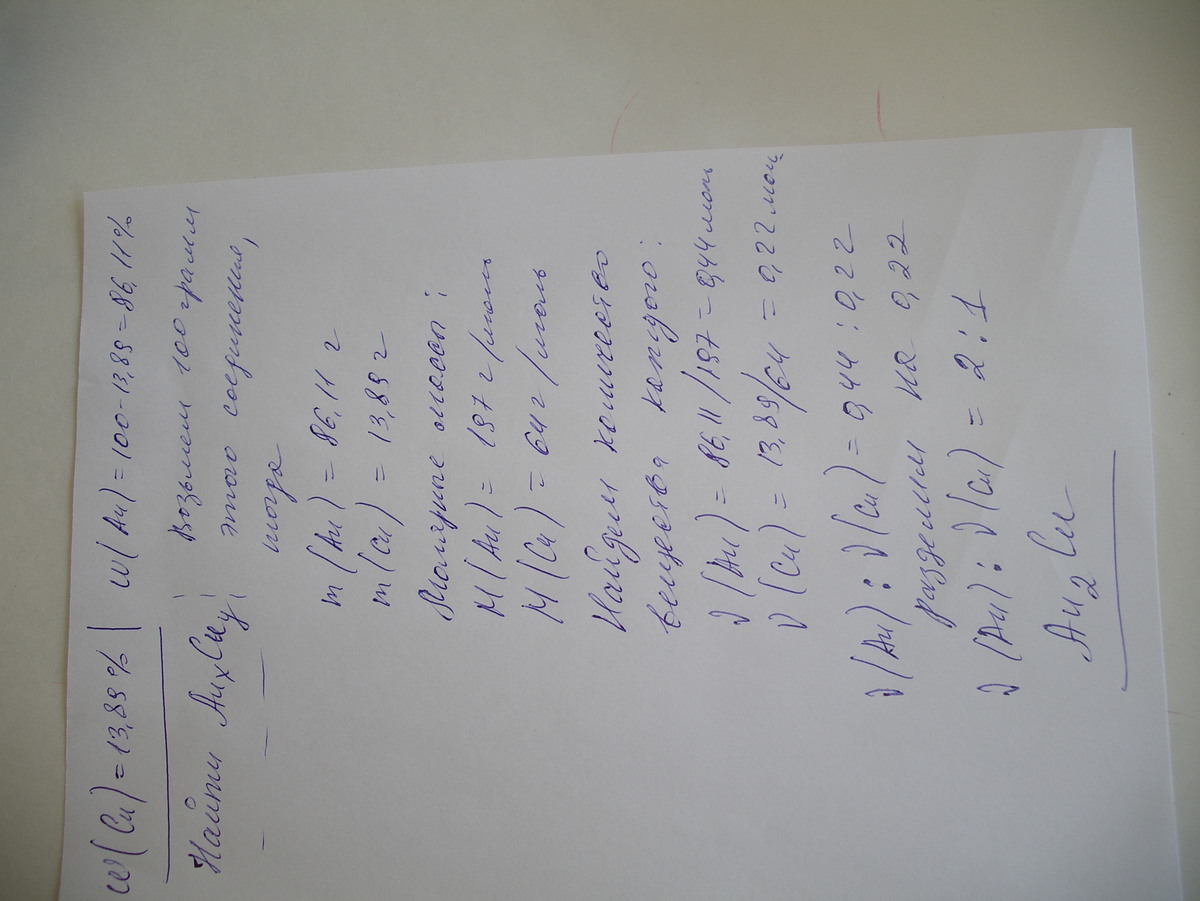 w(Cu) = 13,89% | w(Au) = 100-13,89 = 86,11%
Найти AuxCuy
Возьмем 100 грамм
этого соединения,
тогда
m(Au) = 86,11 г
m(Cu) = 13,89 г
Молярные массы:
M(Au) = 197 г/моль
M(Cu) = 64 г/моль
Найдем количество
вещества каждого:
ν(Au) = 86,11/197 = 0,44 моль
ν(Cu) = 13,89/64 = 0,22 моль
ν(Au) : ν(Cu) = 0,44 : 0,22
разделим на 0,22
ν(Au) : ν(Cu) = 2 : 1
Au2Cu